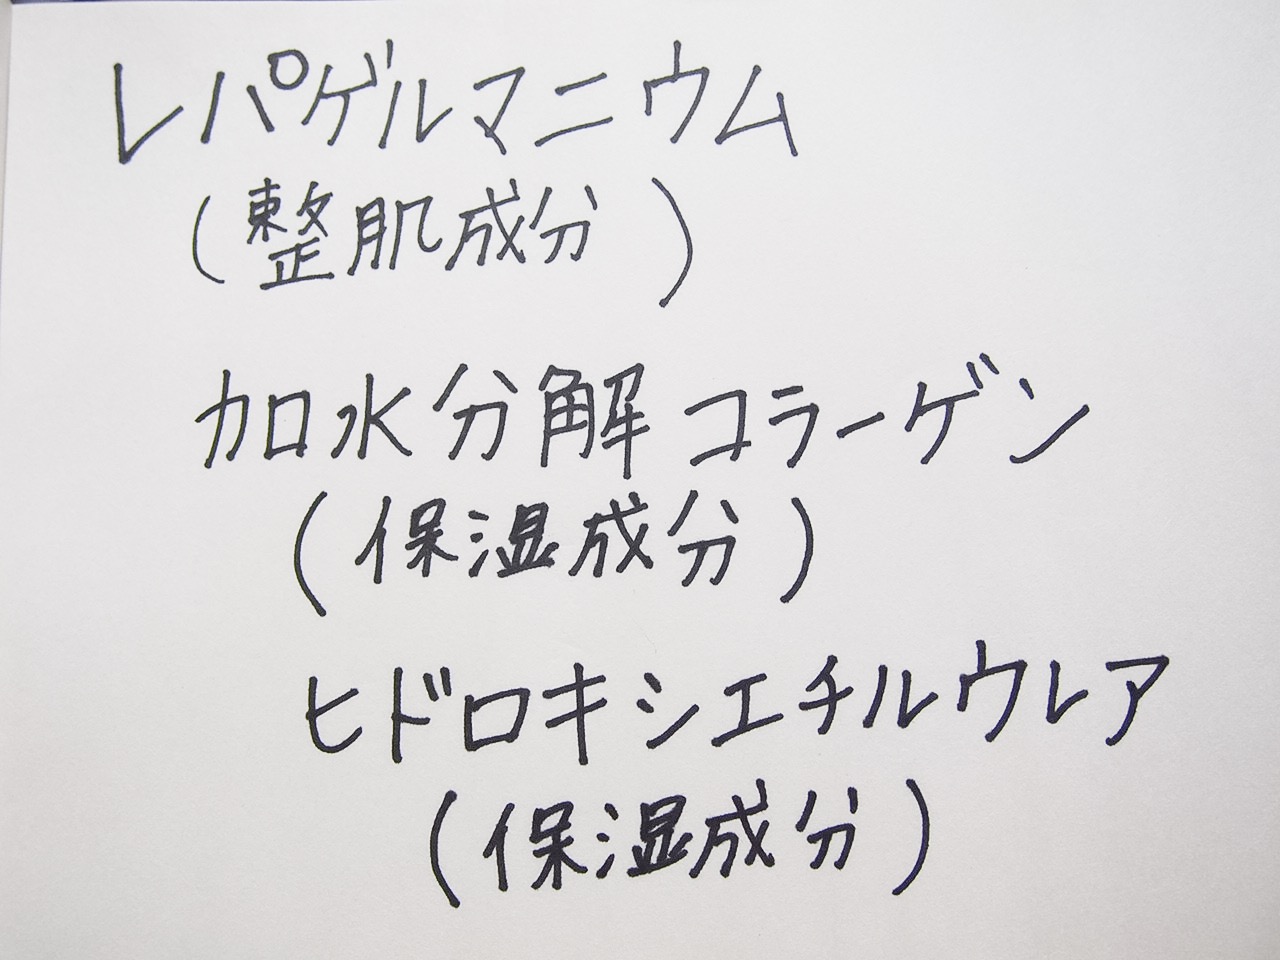 レパゲルマニウム
(整肌成分)
加水分解コラーゲン
(保湿成分)
ヒドロキシエチルウレア
(保湿成分)